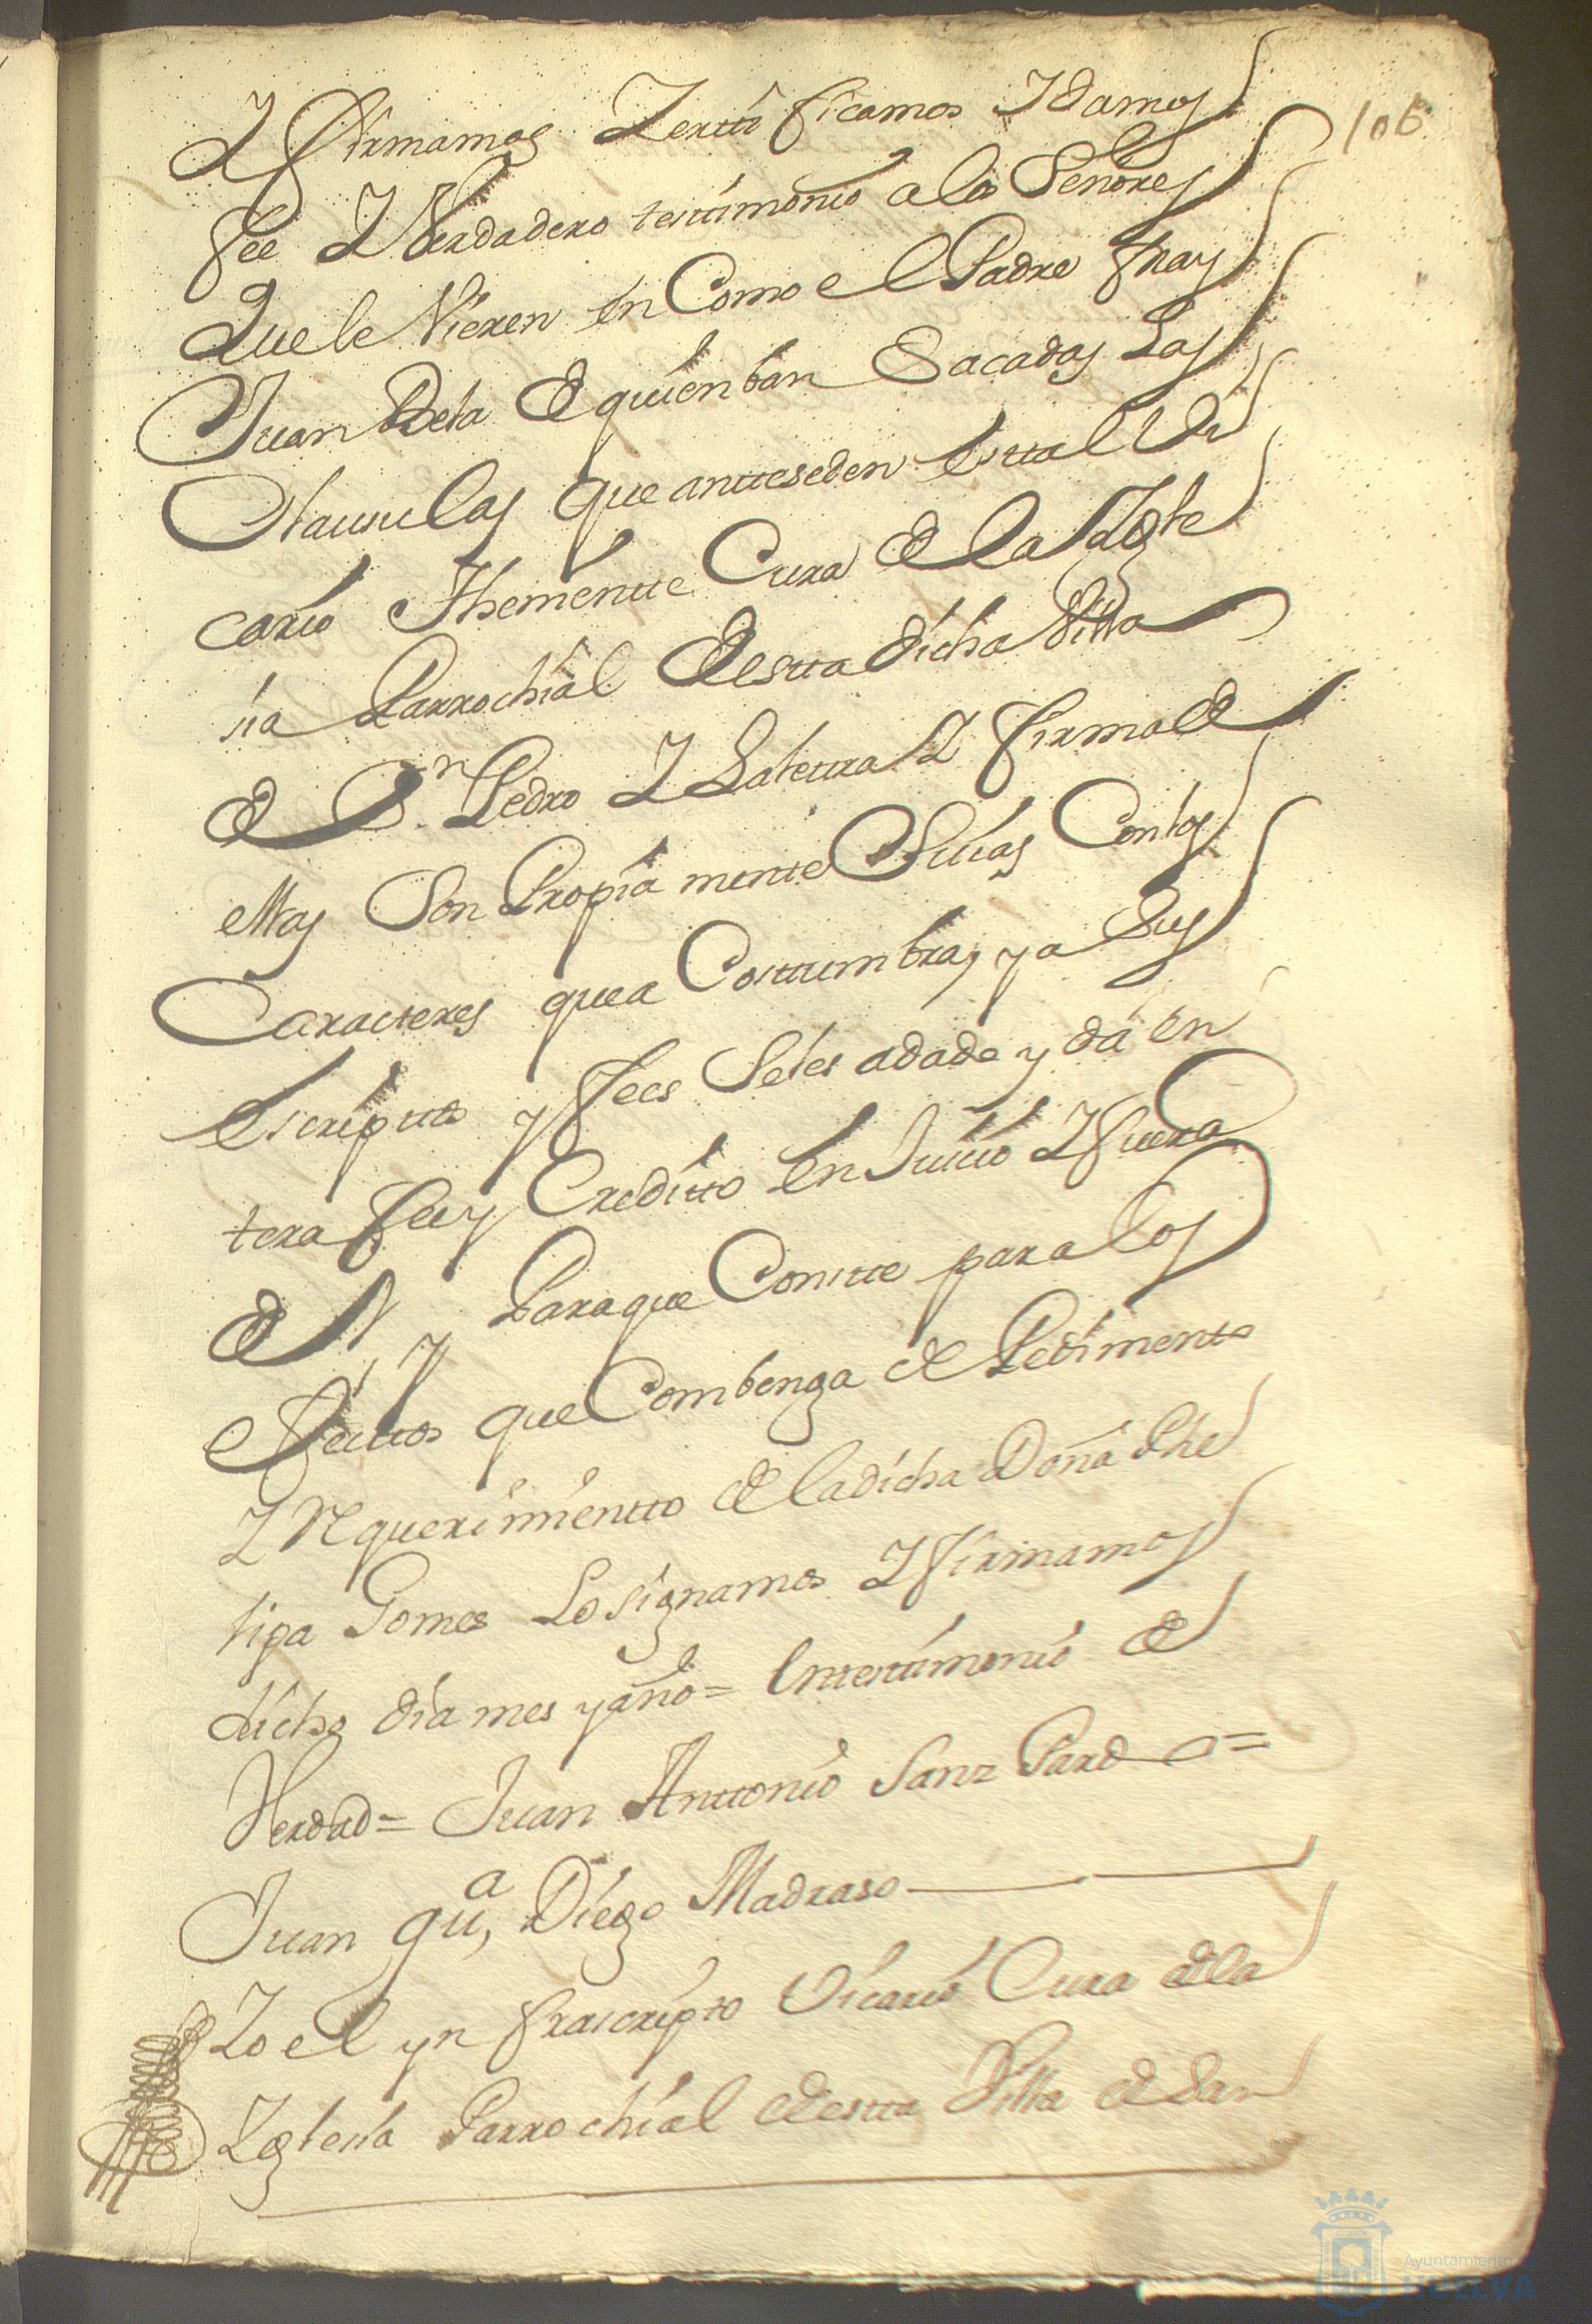 106
Y firmamos Zertificamos Y damos
fee Y Verdadero testtimonio a los Señores
Que le Vieren en Como el Padre fray
Juan Beta de quien ban Sacadas Las
Clausulas que antteseden es tal Vi
cario Theniente Cura de la Igle
sia Parrochial de estta dicha Villa
de Sn. Pedro Y La letra Y firma de
ellas Son Propia mente Suias Con los
Caracteres que a Costtumbra, y a Sus
escriptos y fees Se les a dado y da en
tera fee y Creditto en Juicio Y fuera
de el Y Para que Constte para los
efecttos que Combenga de Pedimento
Y Requerimientto de la dicha Doña Phe
lipa Gomes Lo signamos Y firmamos
dicho dia mes y año = En testtimonio de
Verdad = Juan Anttonio Sanz Pardo =
Juan gua, Diego Madraso
Yo el yn frascripto Vicario Cura de la
Yglesia Parrochial de estta Villa de San
Ayuntamiento
HUELVA